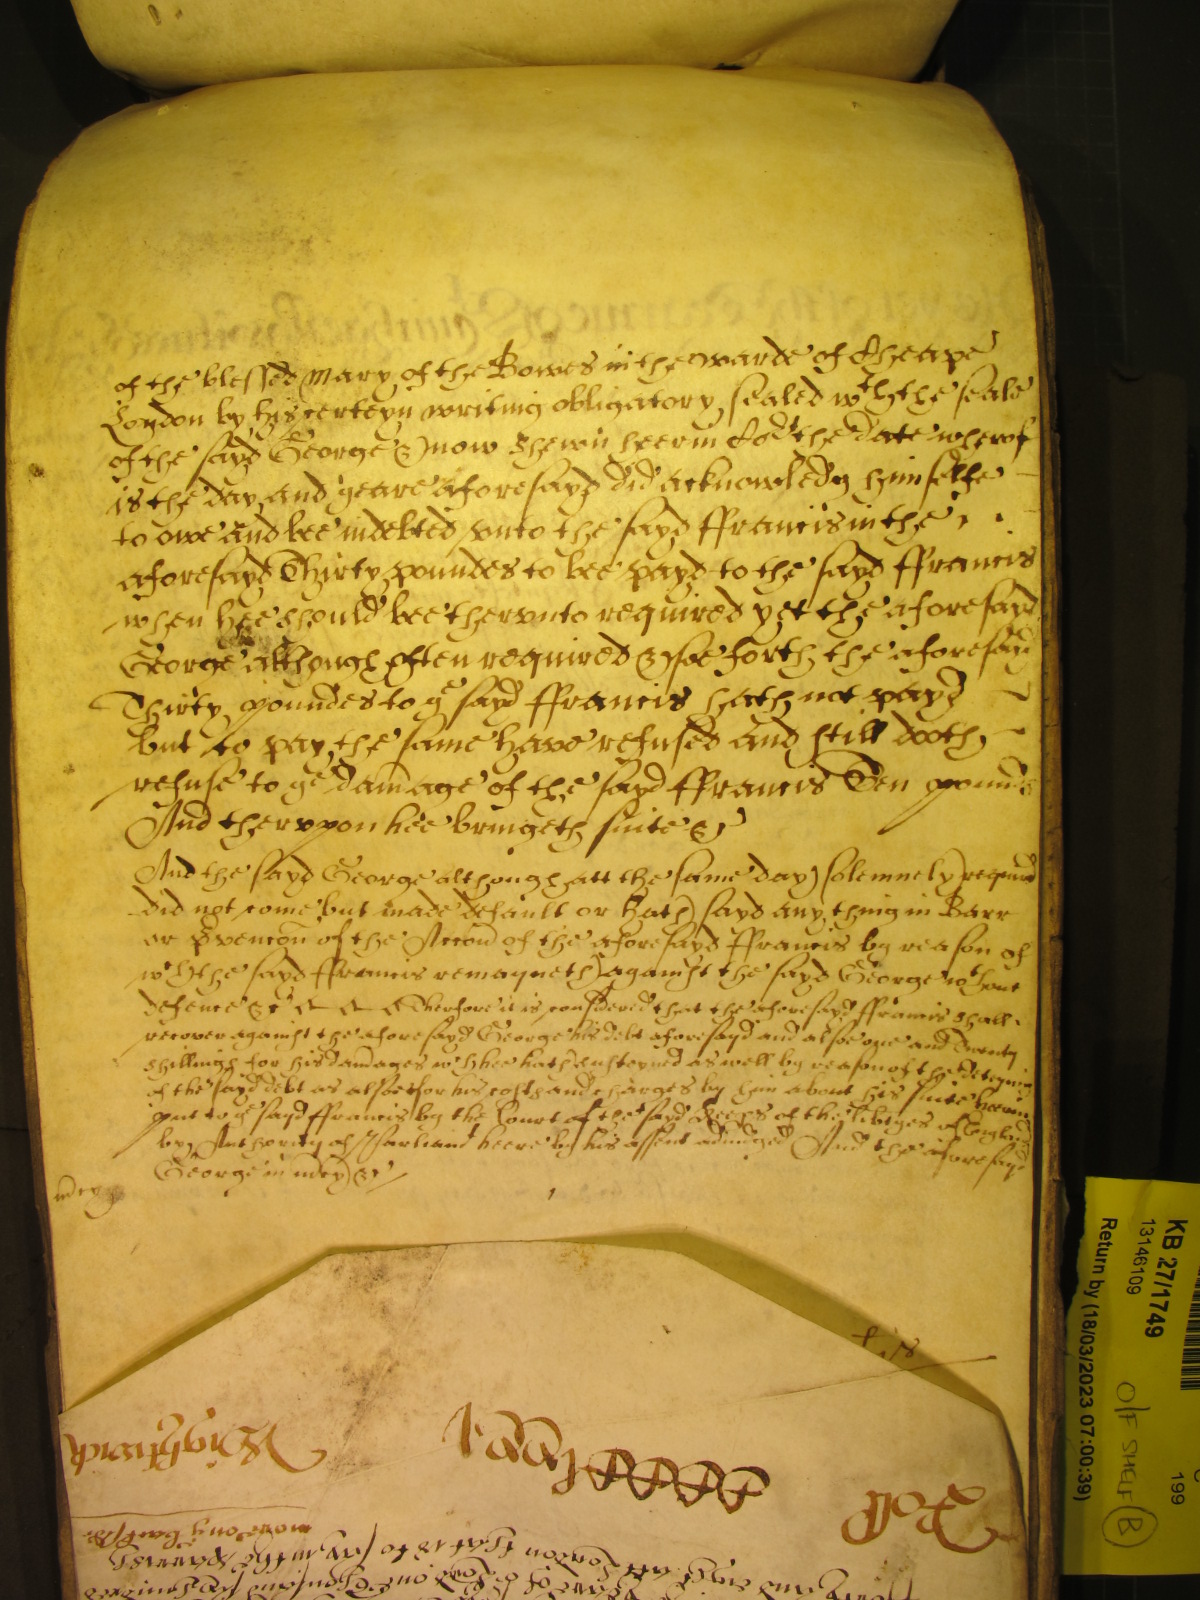 of the blessed Mary of the Bowes in the warde of Cheape
London by his certeyn writing obligatory sealed wth the seale
of the sayd George & now shewn heer in Cort the date wherof
is the day and yeare aforesayd did acknowledg himselfe
to owe and bee indebted vnto the sayd ffrancis in the
aforesayd Thirty poundes to bee payd to the sayd ffrancis
when hee should bee thervnto required yet the aforesayd
George although often required & soe forth the aforesayd
Thirty poundes to ye sayd ffrancis hath not payd
but to pay the same have refused and still doth
refuse to ye damage of the sayd ffrancis Ten pounds
And thervpon hee bringeth suite &c
And the sayd George although att the same day solemnely required
did not come but made default or hath sayd any thing in Barr
or pvencon of the Accon of the aforesayd ffrancis by reason of
wch the sayd ffrancis remayneth against the sayd George wthout
defence &c Therfore it is considered that the aforesayd ffrancis shall
recover against the aforesayd George his debt aforesayd and alsoe one and Twenty
shillings for his damages wch hee hath susteyned as well by reason of the deteyning
of the sayd debt as alsoe for his costs and charges by him about his suite heerin
put to ye sayd ffrancis by the Court of the sayd Keeps of the libtyes of England
by Authority of Parliamt heere by his assent adiudged And the aforesayd
George in mcy &c
mcy
Wightwick
Roll
KB 27/1749
13146109
Return by (18/03/2023 07:00:39)
199
O/F SHELF B